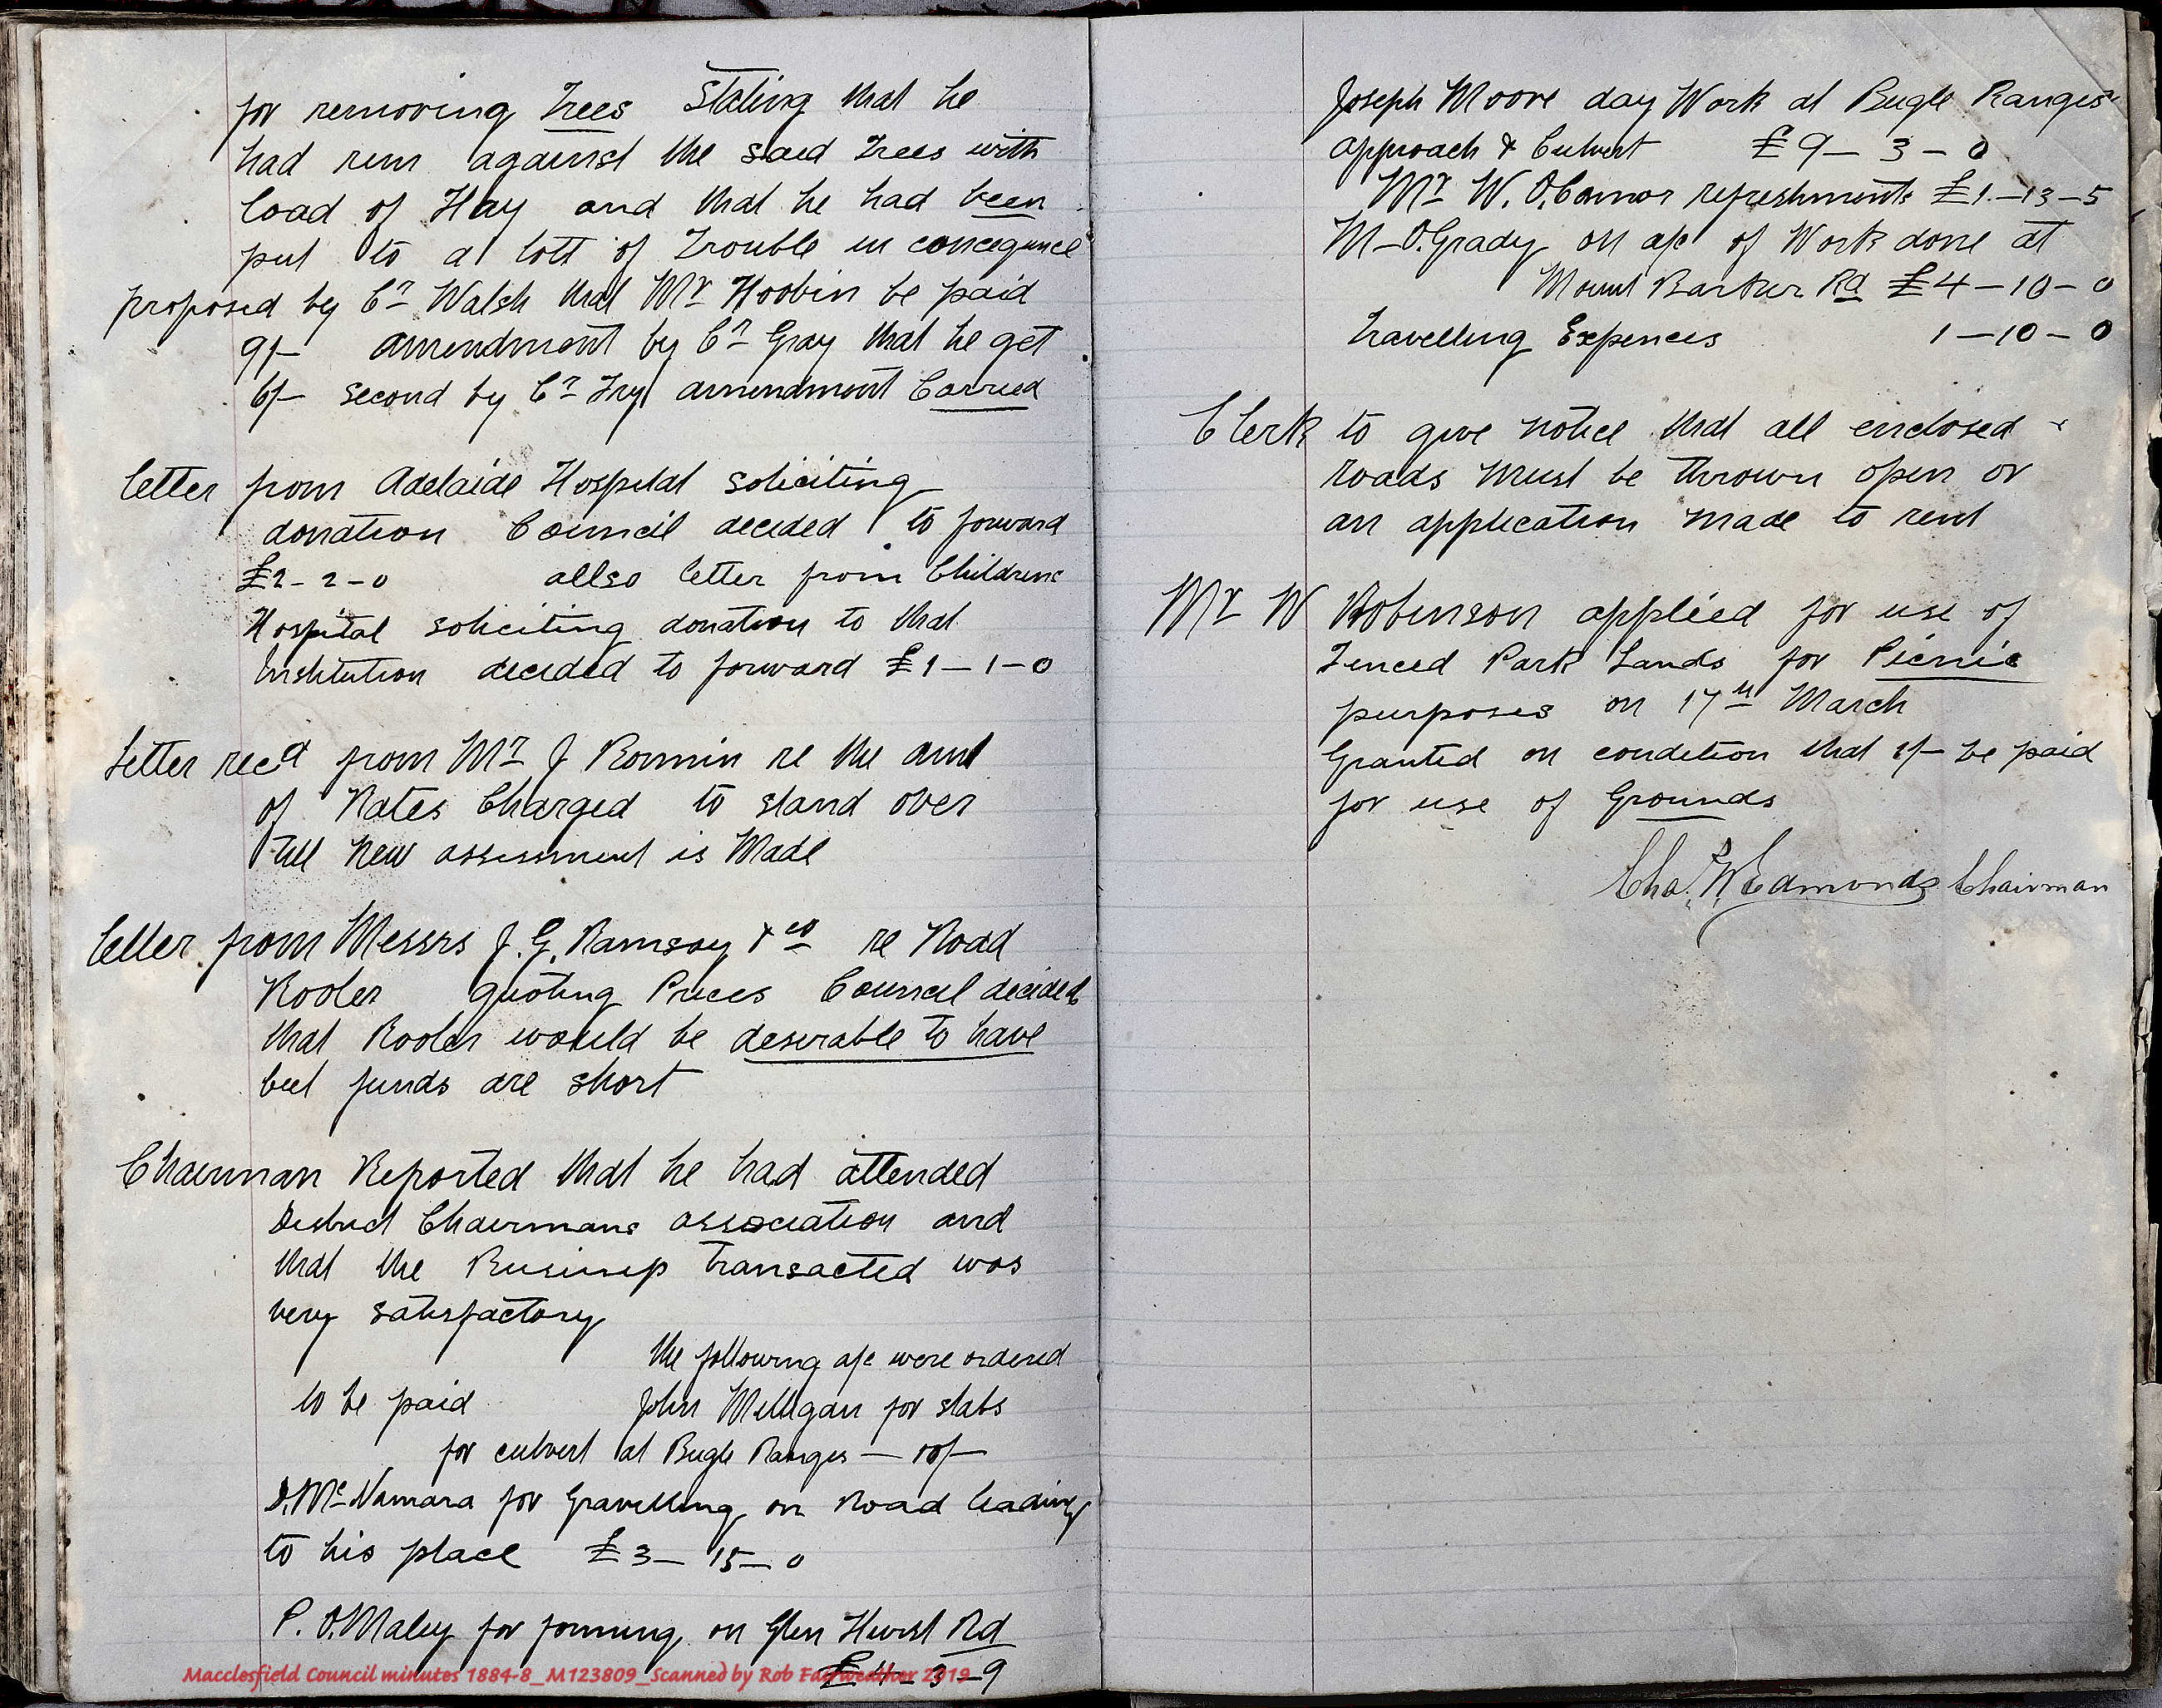 for removing Trees Stating that he
had run against the said Trees with
load of Hay and that he had been
put to a lott of Trouble in concequence
proposed by Cr Walsh that Mr Hoobin be paid
9/- amendment by Cr Gray that he get
6/- second by Cr Fry amendment Carried
letter from Adelaide Hospital soliciting
donation Council decided to forward
£2-2-0 allso letter from Childrens
Hospital soliciting donation to that
Institution decided to forward £1-1-0
Letter recd from Mr J Ronnin re the amt
of Rates Charged to stand over
till New assessment is Made
letter from Messrs J. G. Ramsay & co re Road
Rooler quoting Prices Council decided
that Rooler would be desirable to have
but funds are short
Chairman Reported that he had attended
District Chairmans association and
that the Business transacted was
very satisfactory
the following a/c were ordered
to be paid John Milligan for slabs
for culvert at Bugle Ranges — 10/-
D. McNamara for Gravelling on Road leading
to his place £3-15-0
P. O.Maley for forming on Glen Hurst Rd
£4-3-9
Macclesfield Council minutes 1884-8_M123809_Scanned by Rob Fairweather 2019
Joseph Moore day Work at Bugle Ranges
approach & Culvert £9-3-0
Mr W. O.Connor refreshments £1-13-5
M-O.Grady on a/c of Work done at
Mount Barker Rd £4-10-0
travelling Expences 1-10-0
Clerk to give notice that all enclosed
roads must be thrown open or
an application made to rent
Mr W Robinson applied for use of
Fenced Park Lands for Picnic
purposes on 17th March
Granted on condition that 1/- be paid
for use of Grounds
Cha. W Edmonds Chairman